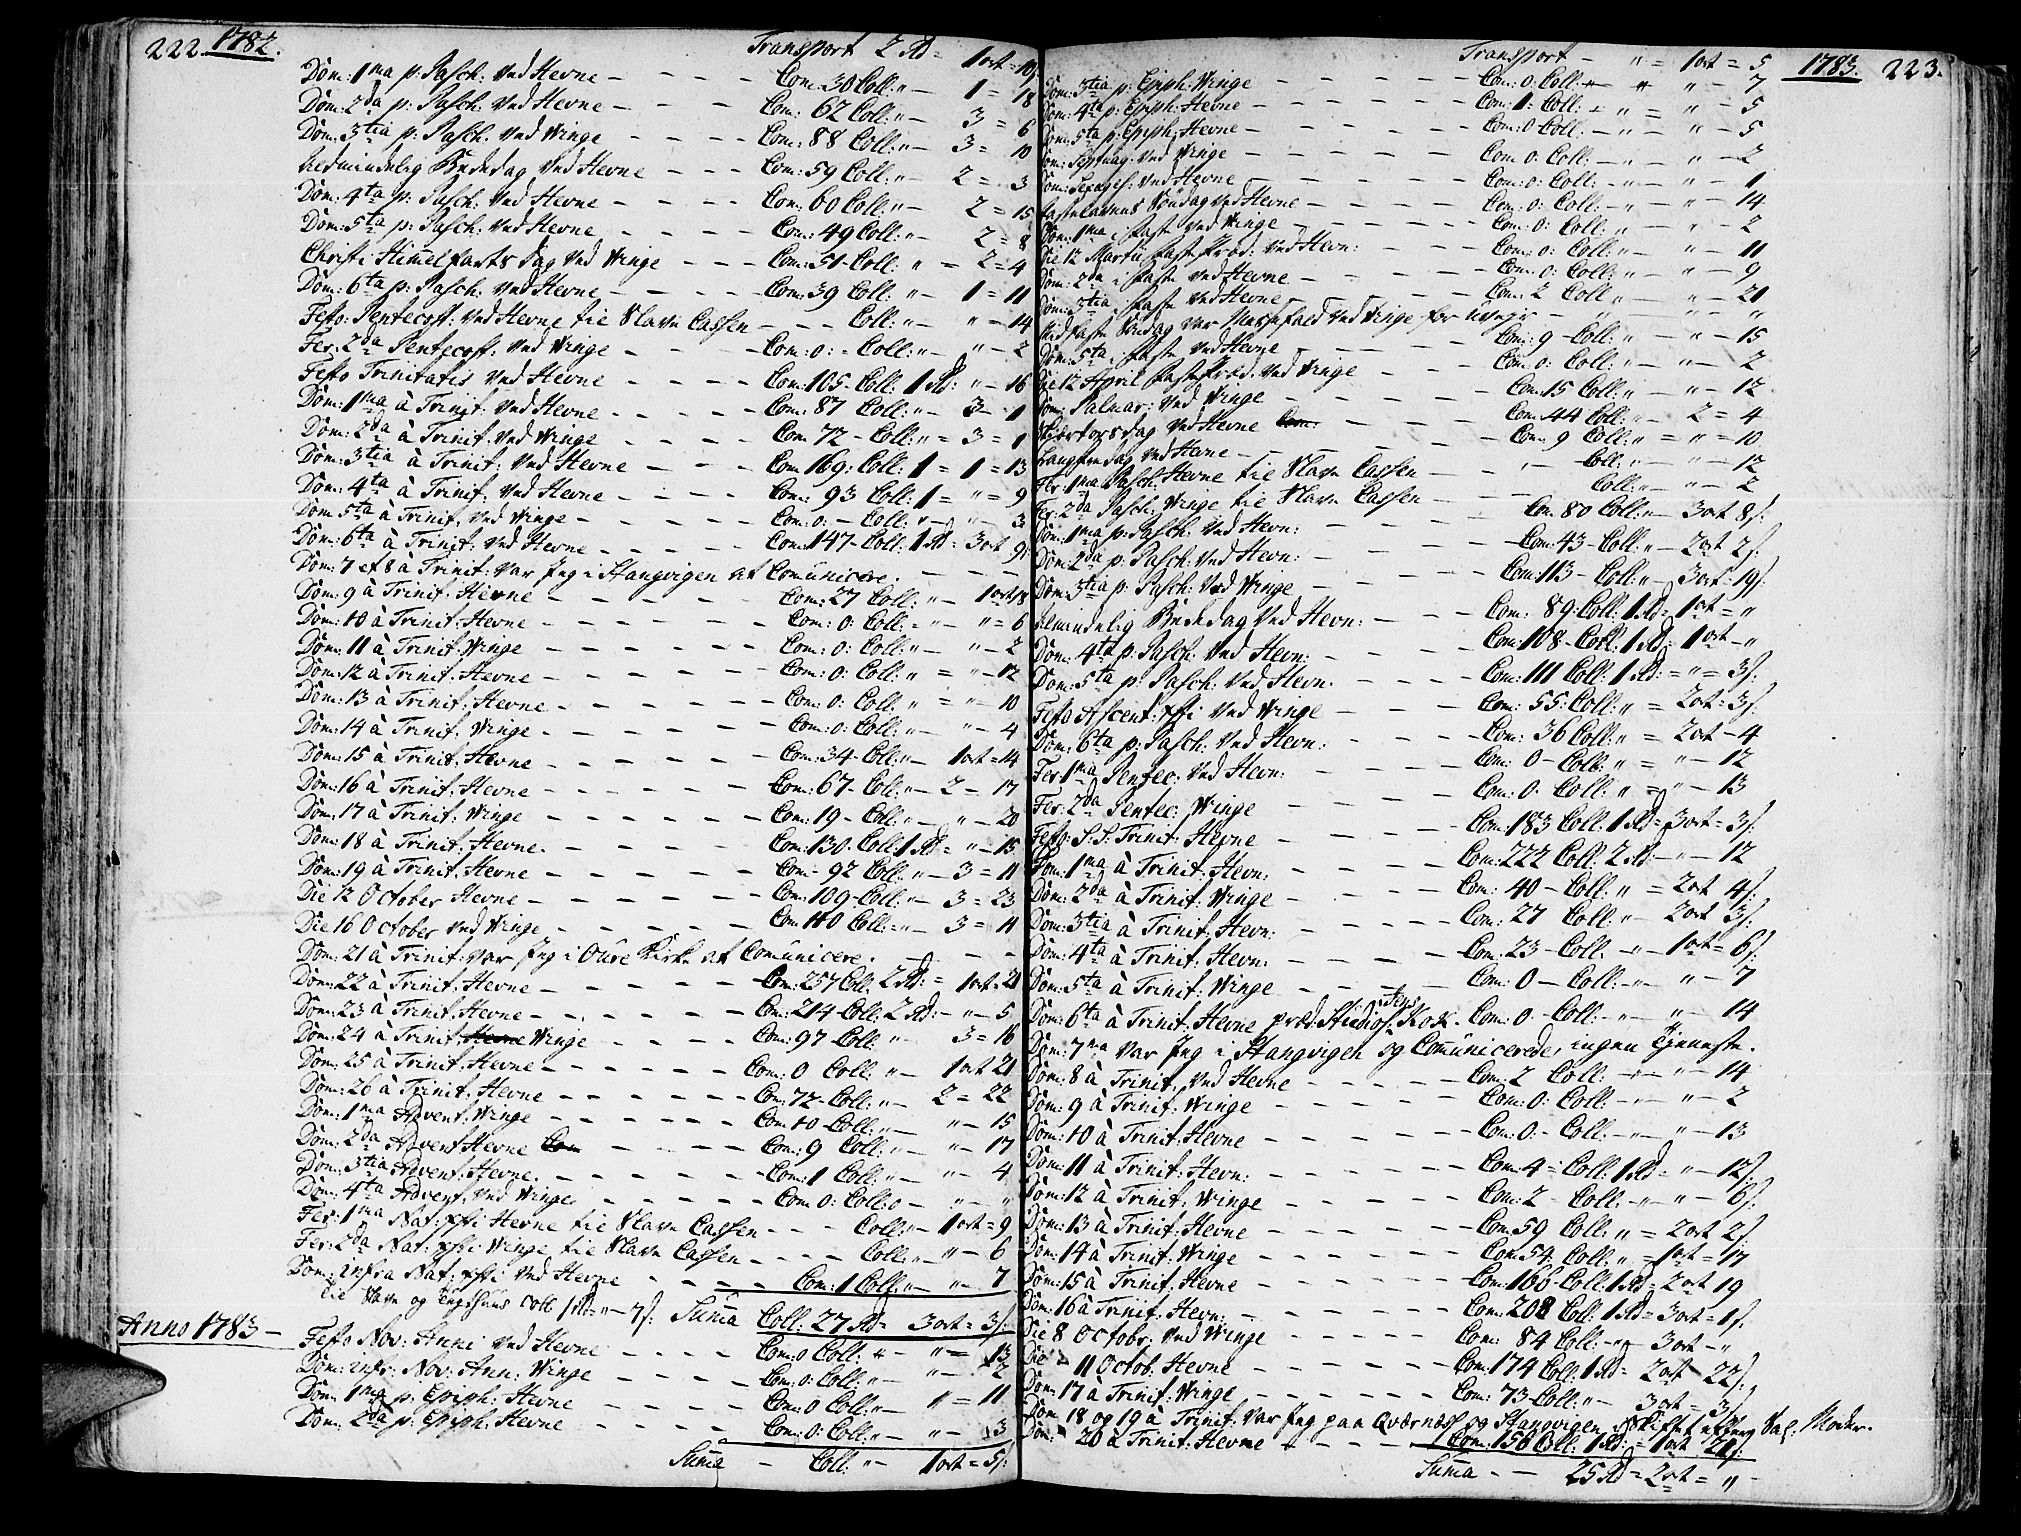 222. 1782.
Transport 2 Rd = 1 ort = 10 s.
Dom: 1ma p: Pasch: Ved Hevne - - - - Com: 30 Coll: " - 1 = 18
Dom: 2da p: Pasch: Ved Hevne - - - - Com: 62 Coll: " - 3 = 6
Dom: 3tia p: Pasch: Ved Winge - - - - Com: 88 Coll: " - 3 = 10
Bededag Ved Hevne - - - Com: 59 Coll: " - 2 = 3
Dom: 4ta p: Pasch: Ved Hevne - - - - Com: 60 Coll: " - 2 = 15
Dom: 5ta p: Pasch: Ved Hevne - - - - Com: 49 Coll: " - 2 = 8
Christi Himmelfarts Dag Ved Winge - - - Com: 51 - Coll: " = 2 = 4
Dom: 6ta p: Pasch: Ved Hevne - - - - Com: 39 Coll: " - 1 = 11
Festo: Pentecost: Ved Hevne til Slave Cassen - - - Coll: " - " = 14
Fer: 2da Pentecost: Ved Winge - - - - Com: 0: - Coll: " - " - 2
Festo Trinitatis Ved Hevne - - - - Com: 105 - Coll: 1 Rd: " - 16
Dom: 1ma à Trinit: Ved Hevne - - - - Com: 87 Coll: " - 3 - 1
Dom: 2da à Trinit: Ved Winge - - - - Com 72 - Coll: " = 3 = 1
Dom: 3tia à Trinit: Ved Hevne - - - - Com 169: Coll: 1 = 1 = 13
Dom: 4ta à Trinit: Ved Hevne - - - - Com: 93 Coll: 1 = " = 9
Dom 5ta à Trinit: Ved Winge - - - - Com: 0: - Coll: " - " - 3
Dom: 6ta à Trinit: Ved Hevne - - - - Com: 147 - Coll: 1 Rd: 3 ort 9 s:
Dom: 7 et 8 à Trinit: Var Jeg i Stangvigen at Comunicere. - - - -
Dom: 9 à Trinit: Hevne - - - - Com: 27 Coll: " - 1 ort 18
Dom: 10 à Trinit: Hevne - - - - Com: 0: Coll: = " - " = 6
Dom: 11 à Trinit: Winge - - - - Com: 0: Coll: " - " - 2
Dom: 12 à Trinit: Hevne - - - - Com: 0: Coll: " = " - 12
Dom: 13 à Trinit: Hevne - - - - Com: 0: Coll: " = " - 10
Dom: 14 à Trinit: Winge - - - - Com: 0: Coll: " - " 4
Dom: 15 à Trinit: Hevne - - - - Com: 34 - Coll: " - 1 ort = 14
Dom: 16 à Trinit: Hevne - - - - Com: 67 - Coll: " - 2 = 17
Dom: 17 à Trinit: Winge - - - - Com: 19 - Coll: " - " - 20
Dom: 18 à Trinit: Hevne - - - - Com: 130 - Coll: 1 Rd = " - 15
Dom: 19 à Trinit: Hevne - - - - Com - 92 Coll: " - 3 = 11
Die 12 October Hevne - - - - Com: 109 - Coll: " - 3 = 23
Die 16 October Ved Winge - - - - Com 110 Coll: = " - 3 = 11
Dom: 21 à Trinit: Var Jeg i Oure Kirke at Comunicere. - - - -
Dom: 22 à Trinit: Hevne - - - - Com: 257 Coll: 2 Rd: = 1 ort = 21
Dom: 23 à Trinit: Hevne - - - - Com: 214 - Coll: 2 Rd: - " - 5
Dom: 24 à Trinit: Hevne Winge - - - - Com: 97 - Coll: " - 3 = 16
Dom: 25 à Trinit: Hevne - - - - Com: 0 Coll: " - 1 ort 21
Dom: 26 à Trinit: Hevne - - - - Com: 72 - Coll: " - 2 = 22
Dom: 1ma Advent: Winge - - - - Com 10 - Coll: " - " - 15
Dom: 2da Advent Hevne Com - - - - Com: 9 Coll: " - " - 17
Dom: 3tia Advent: Hevne. - - - - Com: 1 Coll: " - " - 4
Dom: 4ta Advent: Ved Winge - - - - Com 0: Coll: 0 - " - "
Fer: 1ma Nat: Xsti Hevne til Slave Cassen - - - Coll: " - 1 ort = 9
Fer: 2da Nat: Xsti Winge til Slave Cassen - - - Coll: " - " - 6
Dom: infra Nat: Xsti Ved Hevne - - - - Com: 1 Coll: " - " - 7
Slave og Tugthuus Coll 1 Rd = " - 7 s: Suma Coll: 27 Rd = 3 ort = 3 s:
Anno 1783 -
Festo Nov: Anni Ved Hevne - - - - Com: 0 Coll: " - " = 13
Dom: infr: Nov: Ann: Winge - - - - Com: 0: Coll: " - " - 2
Dom: 1ma p: Epiph: Hevne - - - - Com: 0 Coll: " - " = 11
Dom: 2da p: Epiph: Hevne - - - - Com: 0: Coll: " - " - 13
Suma - Coll: " - 1 ort = 5 s:
1783. 223.
Transport - " = 1 ort = 5
Dom: 3tia p: Epiph: Winge - - - - Com: 0: Coll: " - " - 7
Dom: 4ta p: Epiph: Hevne - - - - Com: 1: Coll: - " = " - 5
Dom: 5ta p: Epiph: Hevne - - - - Com: 0 Coll: - " - " - 5
Dom: Septuag: Ved Winge - - - - Com 0: Coll: - " - " - 2
Dom: Sexages: Ved Hevne - - - - Com: 0: Coll: - " - " - 1
Fastelavns Søndag Ved Hevne - - - - Com: 0: Coll: " - " - 14
Dom: 1ma i Faste Ved Winge - - - - Com: 0: Coll: " - " - 2
Die 12 Martii Faste Præd: Ved Hevn: - - - Com: 0: Coll: " - " - 11
Dom: 2da i Faste Ved Hevne - - - - Com: 0: Coll: " - " - 9
Dom: 3tia i Faste Ved Hevne - - - - Com: 2 Coll " - " - 21
Midfaste Søndag var Messefald Ved Winge for uveyr - " - " - "
Dom: 5ta i Faste Ved Hevne - - - - Com: 9 - Coll: " - " - 15
Die 12 April Faste Præd. Ved Winge - - - Com: 0: Coll: " - " - 2
Dom: Palmar: Ved Winge - - - - Com 15 Coll: " - " - 12
Skiærtorsdag Ved Hevne Com: - - - - Com: 44 Coll: " - 2 = 4
Langfredag Ved Hevne - - - - Com: 9 Coll: " = " = 10
Fer: 1ma Pasch: Hevne til Slave Cassen - - - Coll: " - " - 12
Fer: 2da Pasch: Winge til Slave Cassen - - - Coll: " - " - 2
Dom: 1ma p: Pasch: Ved Hevn: - - - - Com: 80 Coll: " - 3 ort 8 s:
Dom: 2da p: Pasch: Ved Hevn: - - - - Com: 43 - Coll: " - 2 ort 2 s:
Dom: 3tia p: Pasch: Ved Winge - - - - Com: 113 - Coll: " - 3 ort = 19 s:
Bededag Ved Hevn: - - - Com: 89: Coll: 1 Rd: 1 ort = "
Dom: 4ta p: Pasch: Ved Hevn: - - - - Com: 108 - Coll: 1 Rd: 1 ort - "
Dom: 5ta p: Pasch: Ved Hevn. - - - - Com: 111 Coll: 1 Rd: = " = 3 s:
Festo Ascent: Xsti Ved Winge - - - - Com: 55: Coll: " = 2 ort = 3 s:
Dom: 6ta p: Pasch: Ved Hevn: - - - - Com: 36 Coll: " = 2 ort - 4
Fer: 1ma Pentec: Ved Hevn: - - - - Com: 0 - Coll: " = " - 12
Fer: 2da Pentec: Winge - - - - Com: 0: Coll: " = " - 13
Festo: S: S: Trinit: Hevne - - - - Com: 183 Coll: 1 Rd = 3 ort = 3 s:
Dom: 1ma à Trinit: Hevn: - - - - Com: 222 Coll: 2 Rd: - " - 12
Dom: 2da à Trinit: Winge - - - - Com: 40 - Coll: " = 2 ort 4 s:
Dom: 3tia à Trinit: Hevn: - - - - Com: 27 Coll: " - 2 ort 3 s:
Dom: 4ta à Trinit: Hevn: - - - - Com: 23 - Coll. - " - 1 ort = 6 s:
Dom: 5ta à Trinit: Winge - - - - Com: 0 - Coll: - " - " - 7
Dom: 6ta à Trinit: Hevne præd: Studios: Jens Kok. Com: 0 - Coll: - " - " - 14
Dom: 7ma Var Jeg i Stangvigen og Comunicerede, ingen Tieneste.
Dom: 8 à Trinit: Ved Hevne - - - - Com: 2 Coll: - " - " - 14
Dom: 9 à Trinit: Winge - - - - Com: 0: Coll: - " - " - 2
Dom: 10 à Trinit: Hevne - - - - Com: 0: - Coll: - " - " - 13
Dom: 11 à Trinit: Hevn: - - - - Com: 4 = Coll: 1 Rd: " - 12 s:
Dom: 12 à Trinit: Winge - - - - Com: 2 - Coll: - " - " - 6 s:
Dom: 13 à Trinit: Hevne - - - - Com: 59 Coll: " = 2 ort 2 s:
Dom: 14 à Trinit: Winge - - - - Com: 54 Coll: " = 1 ort = 17
Dom: 15 à Trinit: Hevne - - - - Com: 166 - Coll: 1 Rd = 2 ort 19
Dom: 16 à Trinit: Hevn: - - - - Com: 208 Coll: 1 Rd = 3 ort = 1 s:
Die 8 Octobr: Ved Winge - - - - Com: 84 Coll: - " - 3 ort - "
Die 11 Octob: Hevne - - - - Com: 174 Coll: 1 Rd = 2 ort - 22 s:
Dom: 17 à Trinit: Winge - - - - Com: 73 - Coll: " - 3 ort = 3 s:
Dom: 18 og 19 à Trinit: Var Jeg paa Qværnæss og Stangvigen, Skiftet efter Sal: Moder.
Dom: 20 à Trinit: Hevne - - - - Com: 156 Coll: 1 Rd = 1 ort = 21 s:
Suma - - 25 Rd = 2 ort = "